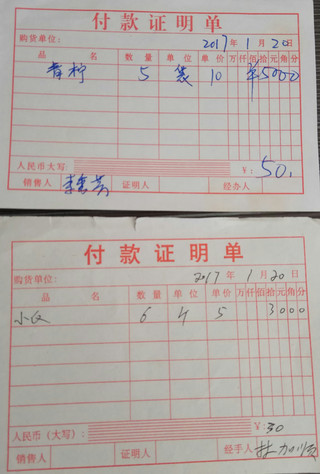 付款证明单
购货单位: 2017年1月20日
品 名 数量 单位 单价 万仟佰拾元角分
青柠 5 袋 10 ¥5000
人民币大写: ¥: 50.
销售人 证明人 经办人
付款证明单
购货单位: 2017年1月20日
品 名 数量 单位 单价 万仟佰拾元角分
6 5 3000
人民币(大写): ¥:30
销售人 证明人 经手人